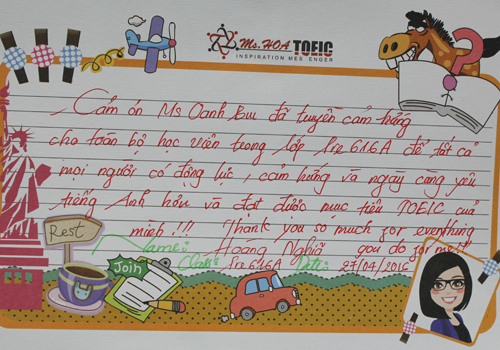 Ms. HOA TOEIC
INSPIRATION MESSENGER
Cảm ơn Ms Oanh Bui đã truyền cảm hứng
cho toàn bộ học viên trong lớp Pre 616A để tất cả
mọi người có động lực, cảm hứng và ngày càng yêu
tiếng Anh hơn và đạt được mục tiêu TOEIC của
mình !!! Thank you so much for everything
you do for me!!
Rest
Name: Hoàng Nghĩa
Class: Pre 616A Date: 27/04/2016
Join